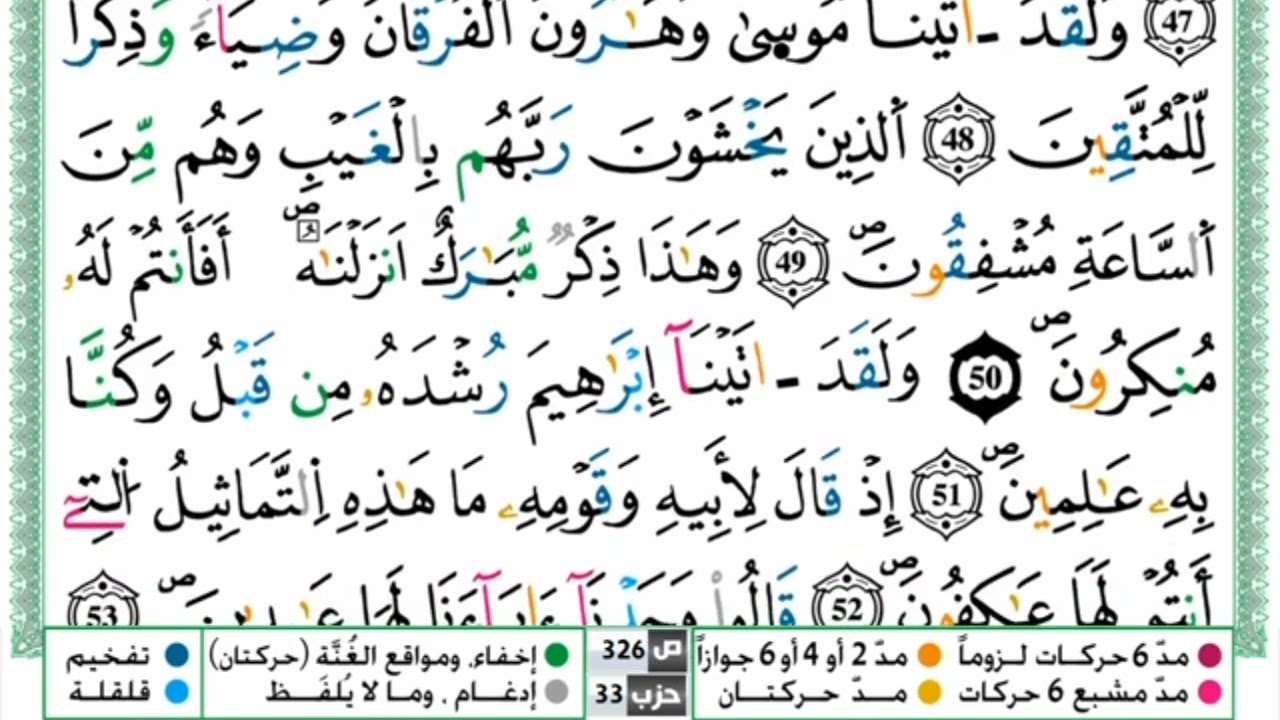 47 وَلَقَدَ ـ اتَيْنَا مُوسٜىٰ وَهَٰرُونَ اَ۬لْفُرْقَانَ وَضِيَآءٗ وَذِكْراٗ
لِّلْمُتَّقِينَ 48 اَ۬لذِينَ يَخْشَوْنَ رَبَّهُم بِالْغَيْبِ وَهُم مِّنَ
اَ۬لسَّاعَةِ مُشْفِقُونَۖ 49 وَهَٰذَا ذِكْرٞ مُّبَٰرَكٌ اَنزَلْنَٰهُۖ أَفَأَنتُمْ لَهُۥ
مُنكِرُونَۖ 50 وَلَقَدَ ـ اتَيْنَآ إِبْرَٰهِيمَ رُشْدَهُۥ مِن قَبْلُ وَكُنَّا
بِهِۦ عَٰلِمِينَۖ 51 إِذْ قَالَ لِأَبِيهِ وَقَوْمِهِۦ مَا هَٰذِهِ اِ۬لتَّمَاثِيلُ اُ۬لتِےٓ
أَنتُمْ لَهَا عَٰكِفُونَۖ 52 قَالُواْ وَجَدْنَآ ءَابَآءَنَا لَهَا عَٰبِدِينَۖ 53
مدّ 6 حركات لـزوماً مدّ 2 أو 4 أو 6 جوازاً ص 326 إخفاء، ومواقع الغُنَّة (حركتان) تفخيم
مدّ مشبع 6 حركات مـدّ حركتـان حزب 33 إدغام ، وما لا يُلفَـظ قلقلة